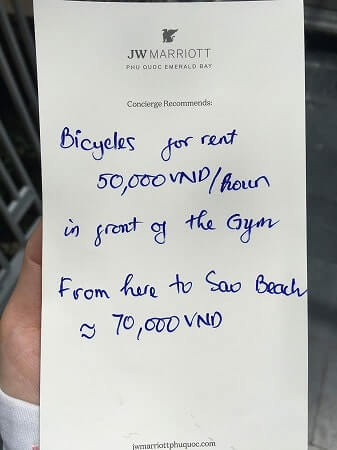 JW MARRIOTT
PHU QUOC EMERALD BAY
Concierge Recommends:
Bicycles for rent
50,000 VND/hour
in front of the Gym
From here to Sao Beach
≈ 70,000 VND
jwmarriottphuquoc.com